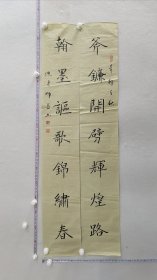 斧鐮開劈輝煌路
翰墨謳歌錦繡春